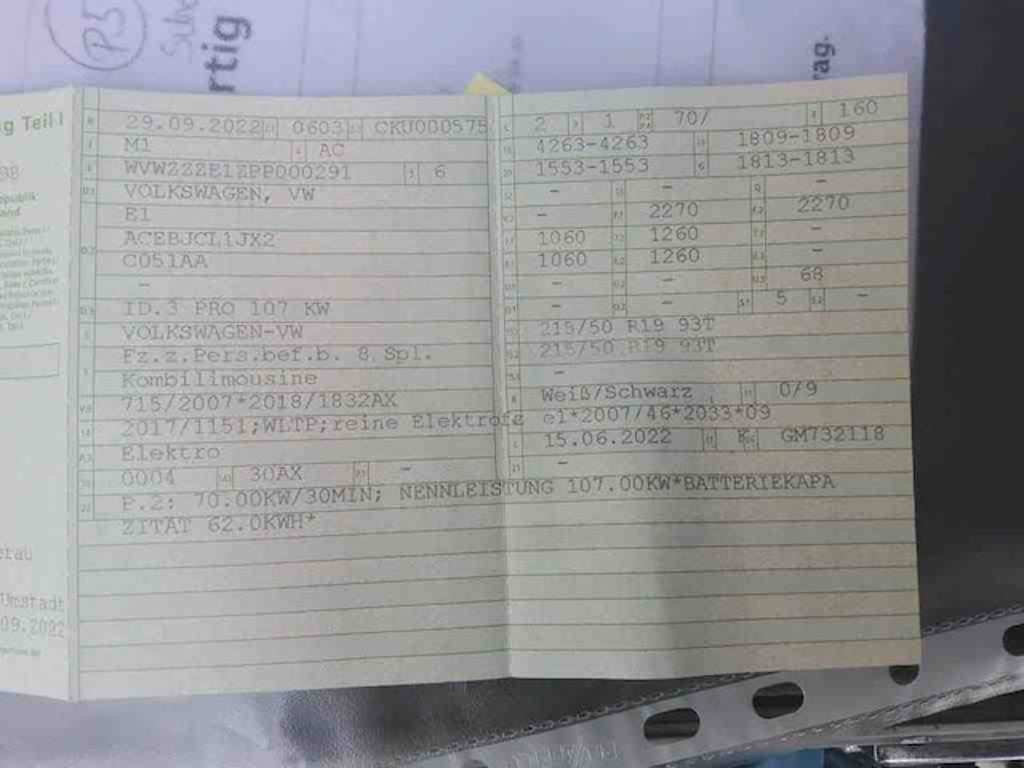 P5
rtig
rag.
g Teil I
98
epublik
29.09.2022 0603 CKU000575
M1 AC
WVWZZZE1ZPP000291 6
VOLKSWAGEN, VW
E1
ACEBJCL1JX2
C051AA
-
ID.3 PRO 107 KW
VOLKSWAGEN-VW
Fz.z.Pers.bef.b. 8 Spl.
Kombilimousine
715/2007*2018/1832AX
2017/1151;WLTP;reine Elektrofz
Elektro
0004 30AX -
P.2: 70.00KW/30MIN; NENNLEISTUNG 107.00KW*BATTERIEKAPA
ZITÄT 62.0KWH*
2 1 70/ 160
4263-4263 1809-1809
1553-1553 1813-1813
- - -
- 2270 2270
1060 1260 -
1060 1260 -
- - 68
- - 5 -
215/50 R19 93T
215/50 R19 93T
-
Weiß/Schwarz 0/9
e1*2007/46*2033*09
15.06.2022 K GM732118
-
erau
Umstadt
09.2022